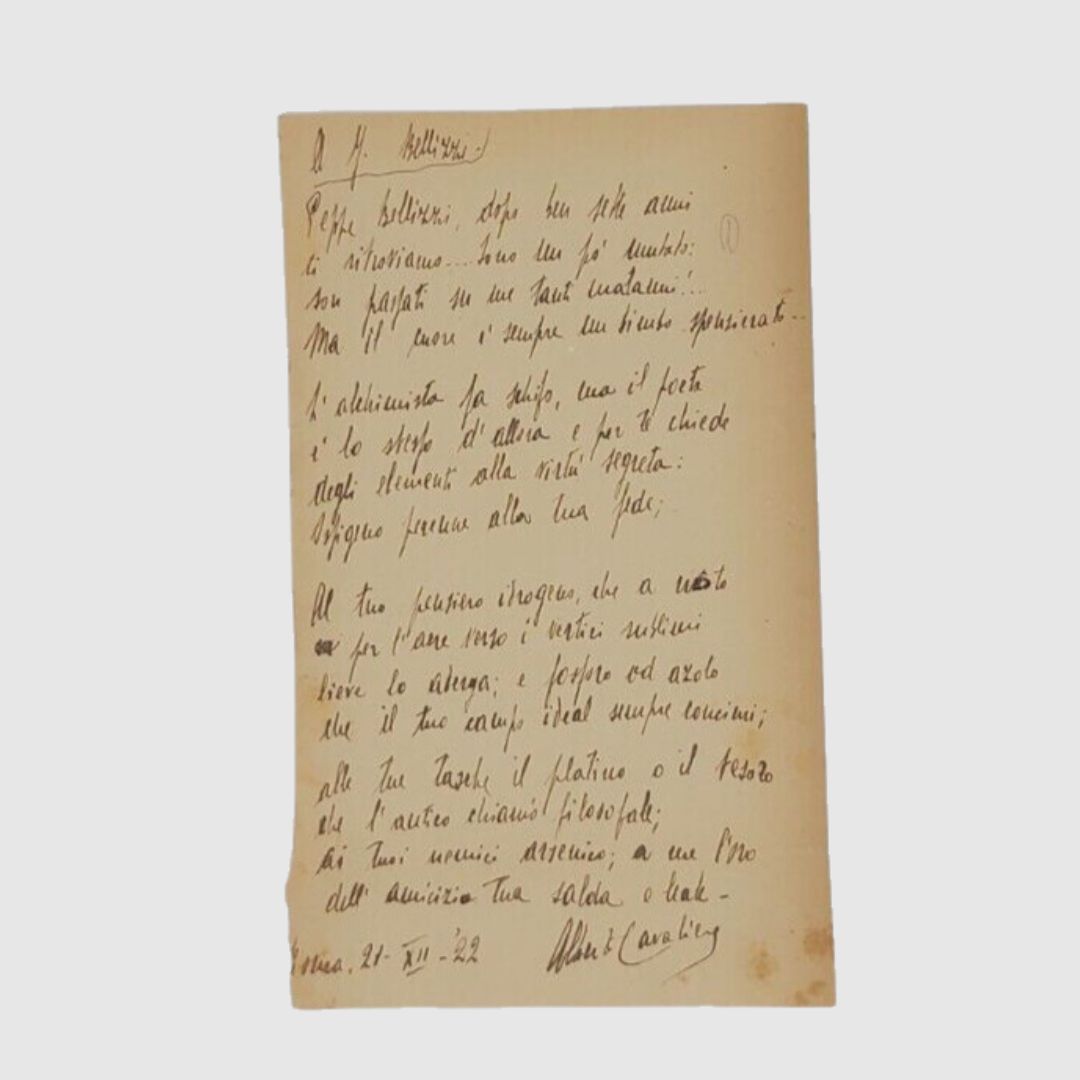 A G. Bellizzi.
Peppe Bellizzi, dopo ben sette anni
ti ritroviamo... Sono un po' mutato:
son passati su me tanti malanni!..
Ma il cuore è sempre un bimbo spensierato...
L'alchimista fa schifo, ma il poeta
è lo stesso d'allora e per te chiede
degli elementi alla virtù segreta:
Ossigeno perenne alla tua fede;
Al tuo pensiero idrogeno, che a
per l'aere verso i vertici sublimi
lieve lo aderga; e fosforo ed azoto
che il tuo campo ideal sempre concimi;
alle tue tasche il platino o il tesoro
che l'antico chiamò filosofale;
ai tuoi nemici arsenico; a me l'oro
dell'amicizia tua salda e leale -
Roma, 21-XII-'22 Alberto Cavaliere